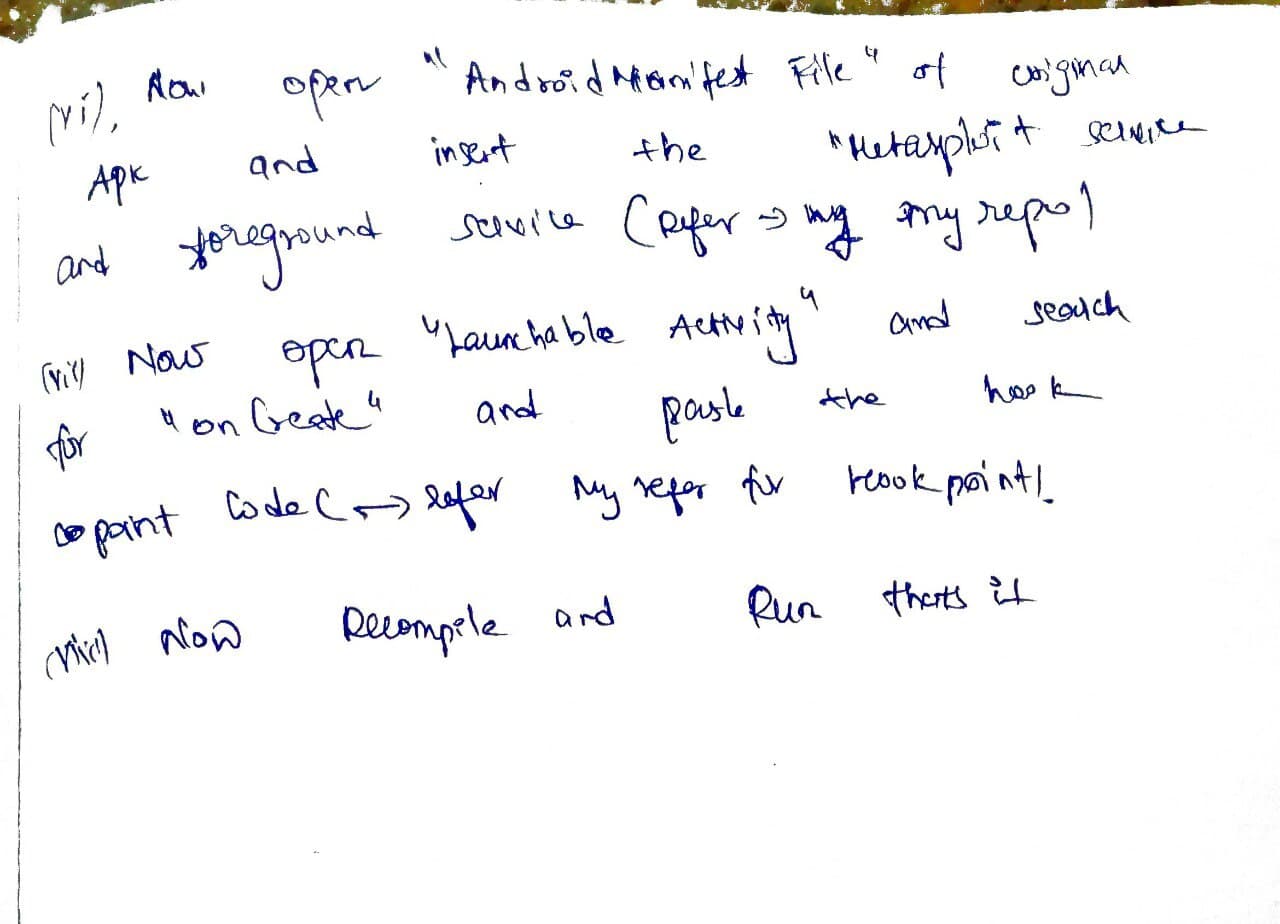 (vi), Now open "AndroidManifest File" of original
APK and insert the "Metasploit service
and foreground service (Refer → my repo)
(vii) Now open "Launchable Activity" and search
for "onCreate" and paste the hook
point Code (→ Refer My refer for Hook point)
(viii) Now Recompile and Run thats it